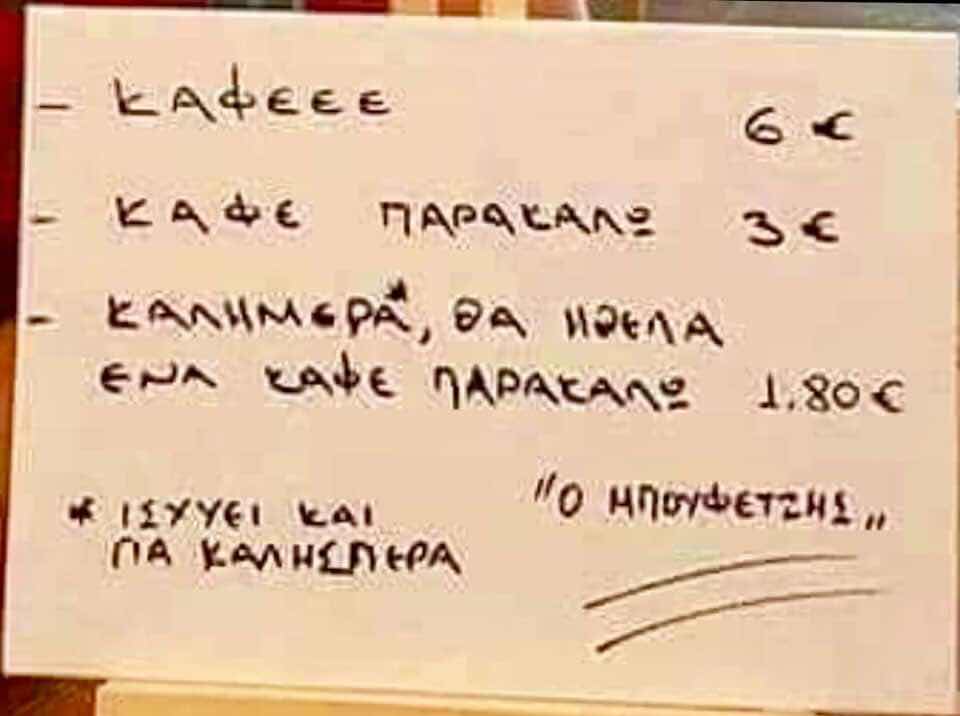 - ΚΑΦΕΕΕ 6 €
- ΚΑΦΕ ΠΑΡΑΚΑΛΩ 3 €
- ΚΑΛΗΜΕΡΑ*, ΘΑ ΗΘΕΛΑ
ΕΝΑ ΚΑΦΕ ΠΑΡΑΚΑΛΩ 1.80 €
* ΙΣΥΥΕΙ ΚΑΙ
ΓΙΑ ΚΑΛΗΣΠΕΡΑ
"Ο ΜΠΟΥΦΕΤΖΗΣ„